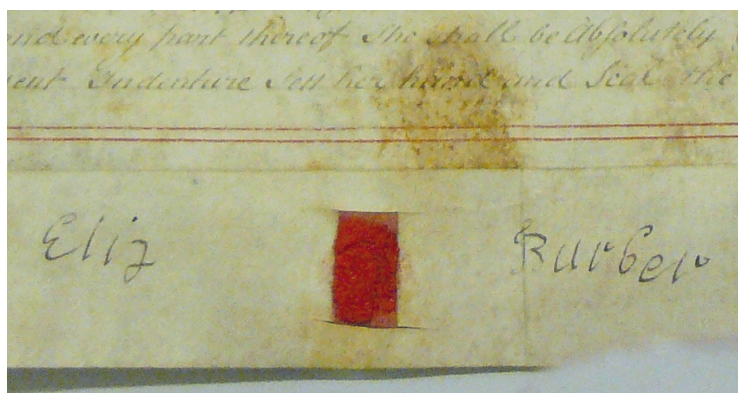 and every part thereof She shall be Absolutely
Indenture Sett her hand and Seal the
Eliz Burber